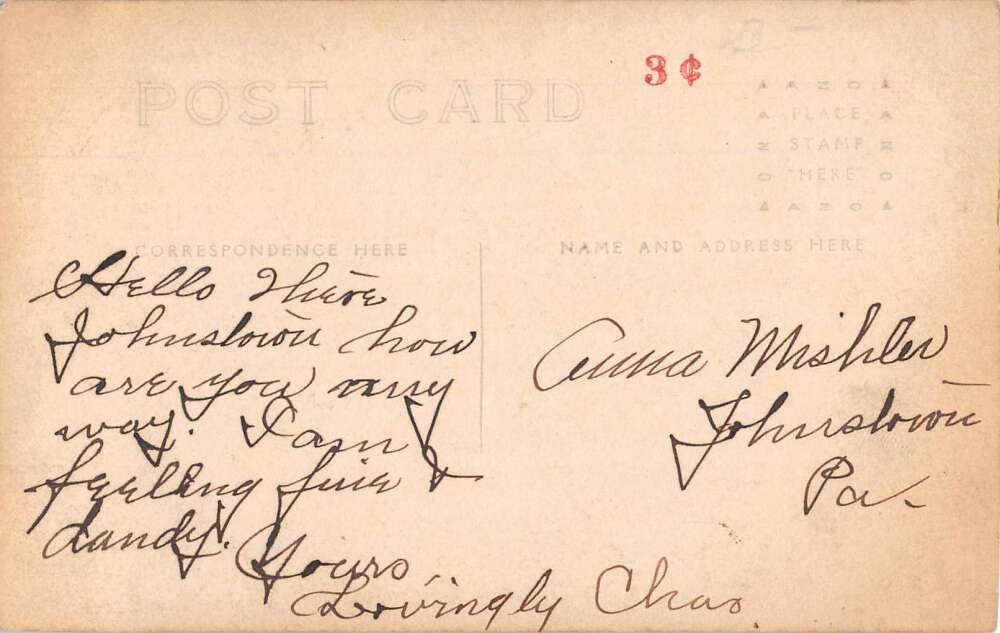 3¢
POST CARD
AZO
PLACE
STAMP
HERE
AZO
CORRESPONDENCE HERE
NAME AND ADDRESS HERE
Hello There
Johnstown how
are you any
way. I am
feeling fine &
dandy.
Yours,
Lovingly Chas.
Anna Mishler
Johnstown
Pa.